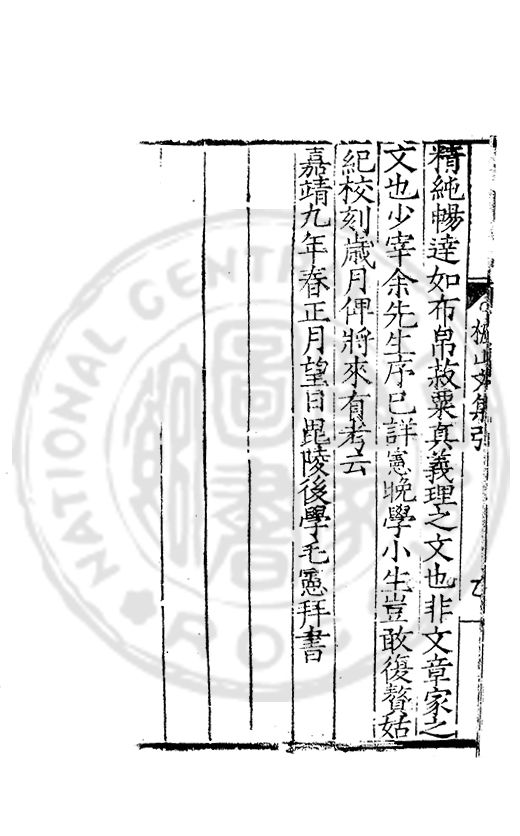 楓山文集引
精純暢達如布帛菽粟真義理之文也非文章家之
文也少宰余先生序已詳憲晚學小生豈敢復贅姑
紀校刻歲月俾將來有考云
嘉靖九年春正月望日毘陵後學毛憲拜書
NATIONAL CENTRAL
圖書
ROC